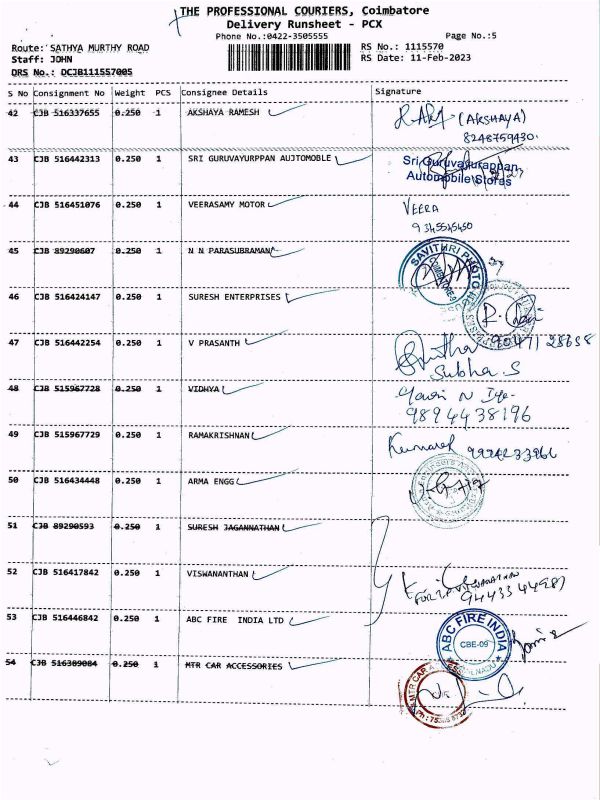 THE PROFESSIONAL COURIERS, Coimbatore
Delivery Runsheet - PCX
Phone No.:0422-3505555 Page No.:5
Route: SATHYA MURTHY ROAD RS No.: 1115570
Staff: JOHN RS Date: 11-Feb-2023
DRS No.: DCJB111557005
S No Consignment No Weight PCS Consignee Details Signature
42 CJB 516337655 0.250 1 AKSHAYA RAMESH (AKSHAYA)
8248759430
43 CJB 516442313 0.250 1 SRI GURUVAYURPPAN AUJTOMOBLE Sri Guruvayurappan
Automobile Stores
44 CJB 516451076 0.250 1 VEERASAMY MOTOR VEERA
9345545450
45 CJB 89290607 0.250 1 N N PARASUBRAMAN SAVITHRI PHOTO HOUSE
46 CJB 516424147 0.250 1 SURESH ENTERPRISES
47 CJB 516442254 0.250 1 V PRASANTH
Subha.S
48 CJB 515967728 0.250 1 VIDHYA
9894438196
49 CJB 515967729 0.250 1 RAMAKRISHNAN
50 CJB 516434448 0.250 1 ARMA ENGG
51 CJB 89290593 0.250 1 SURESH JAGANNATHAN
52 CJB 516417842 0.250 1 VISWANANTHAN
53 CJB 516446842 0.250 1 ABC FIRE INDIA LTD ABC FIRE INDIA
CBE-09
54 CJB 516389084 0.250 1 MTR CAR ACCESSORIES MTR CAR